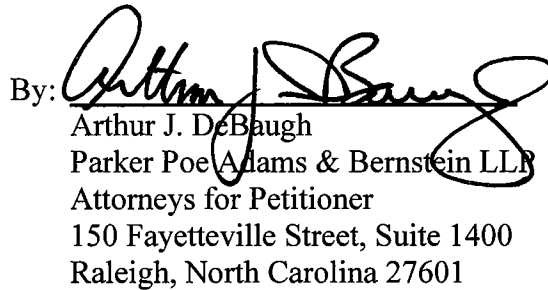 By: Arthur J. DeBaugh
Arthur J. DeBaugh
Parker Poe Adams & Bernstein LLP
Attorneys for Petitioner
150 Fayetteville Street, Suite 1400
Raleigh, North Carolina 27601